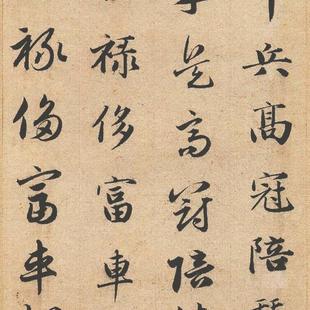 兵高冠陪
兵高冠陪
祿侈富車
祿侈富車